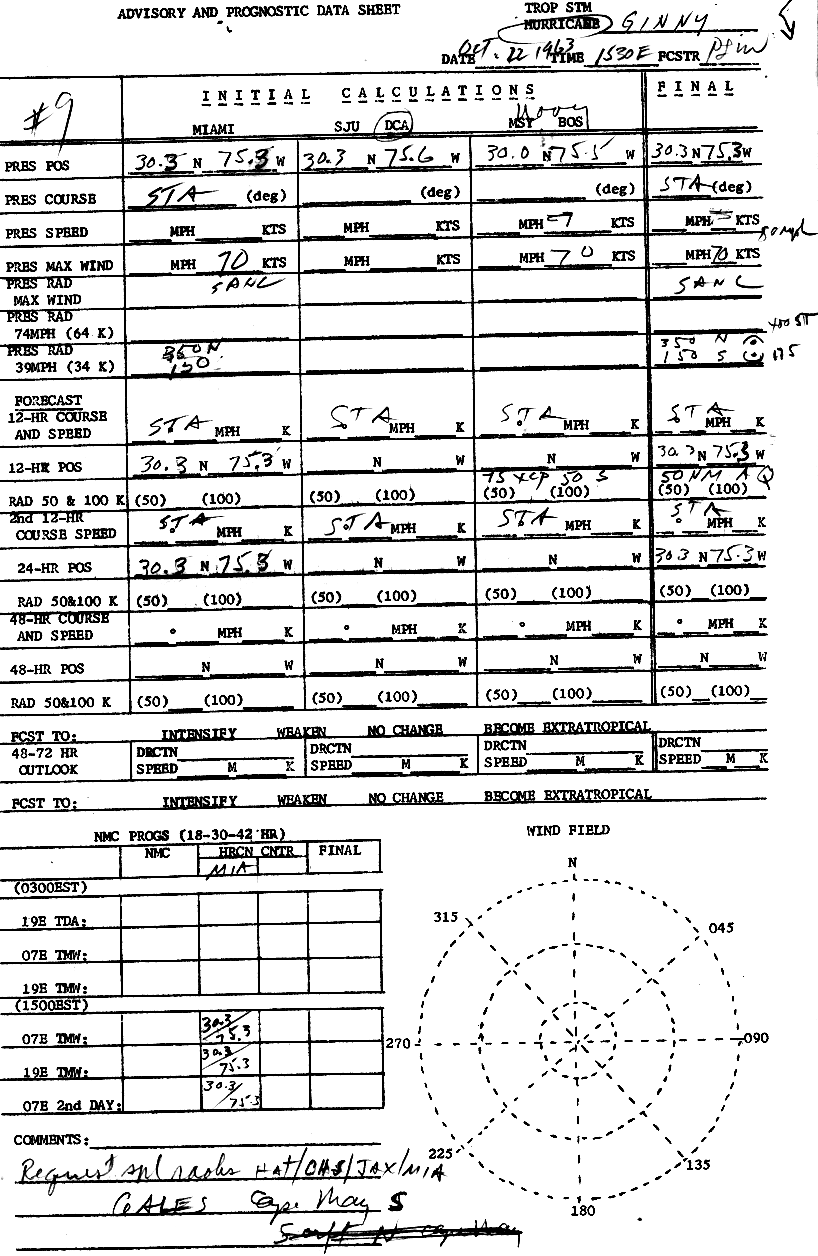 ADVISORY AND PROGNOSTIC DATA SHEET TROP STM
HURRICANE GINNY
DATE Oct. 22 1963 TIME 1530E FCSTR
#9 INITIAL CALCULATIONS FINAL
MIAMI SJU DCA MSY BOS
PRES POS 30.3 N 75.3 W 30.3 N 75.6 W 30.0 N 75.5 W 30.3 N 75.3 W
PRES COURSE STA (deg) (deg) (deg) STA (deg)
PRES SPEED MPH KTS MPH KTS MPH KTS MPH KTS
80 mph
PRES MAX WIND MPH 70 KTS MPH KTS MPH 70 KTS MPH 70 KTS
PRES RAD
MAX WIND SANC SANC
PRES RAD
74MPH (64 K)
PRES RAD
39MPH (34 K) 350 N 150 350 N 150 S 175
FORECAST
12-HR COURSE
AND SPEED STA MPH K STA MPH K STA MPH K STA MPH K
12-HR POS 30.3 N 75.3 W N W N W 30.3 N 75.3 W
75 xcp 50 S 50 NM A Q
RAD 50 & 100 K (50) (100) (50) (100) (50) (100) (50) (100)
2nd 12-HR
COURSE SPEED STA MPH K STA MPH K STA MPH K STA ° MPH K
24-HR POS 30.3 N 75.3 W N W N W 30.3 N 75.3 W
RAD 50&100 K (50) (100) (50) (100) (50) (100) (50) (100)
48-HR COURSE
AND SPEED ° MPH K ° MPH K ° MPH K ° MPH K
48-HR POS N W N W N W N W
RAD 50&100 K (50) (100) (50) (100) (50) (100) (50) (100)
FCST TO: INTENSIFY WEAKEN NO CHANGE BECOME EXTRATROPICAL
48-72 HR DRCTN DRCTN DRCTN DRCTN
OUTLOOK SPEED M K SPEED M K SPEED M K SPEED M K
FCST TO: INTENSIFY WEAKEN NO CHANGE BECOME EXTRATROPICAL
NMC PROGS (18-30-42 HR)
NMC HRCN CNTR FINAL
MIA
(0300EST)
19E TDA:
07E TMW:
19E TMW:
(1500EST)
07E TMW: 30.3/75.3
19E TMW: 30.3/75.3
07E 2nd DAY: 30.3/75.3
WIND FIELD
N
315 045
270 090
225 135
180
COMMENTS:
Request spl raobs HAT/CHS/JAX/MIA
GALES Cape May S